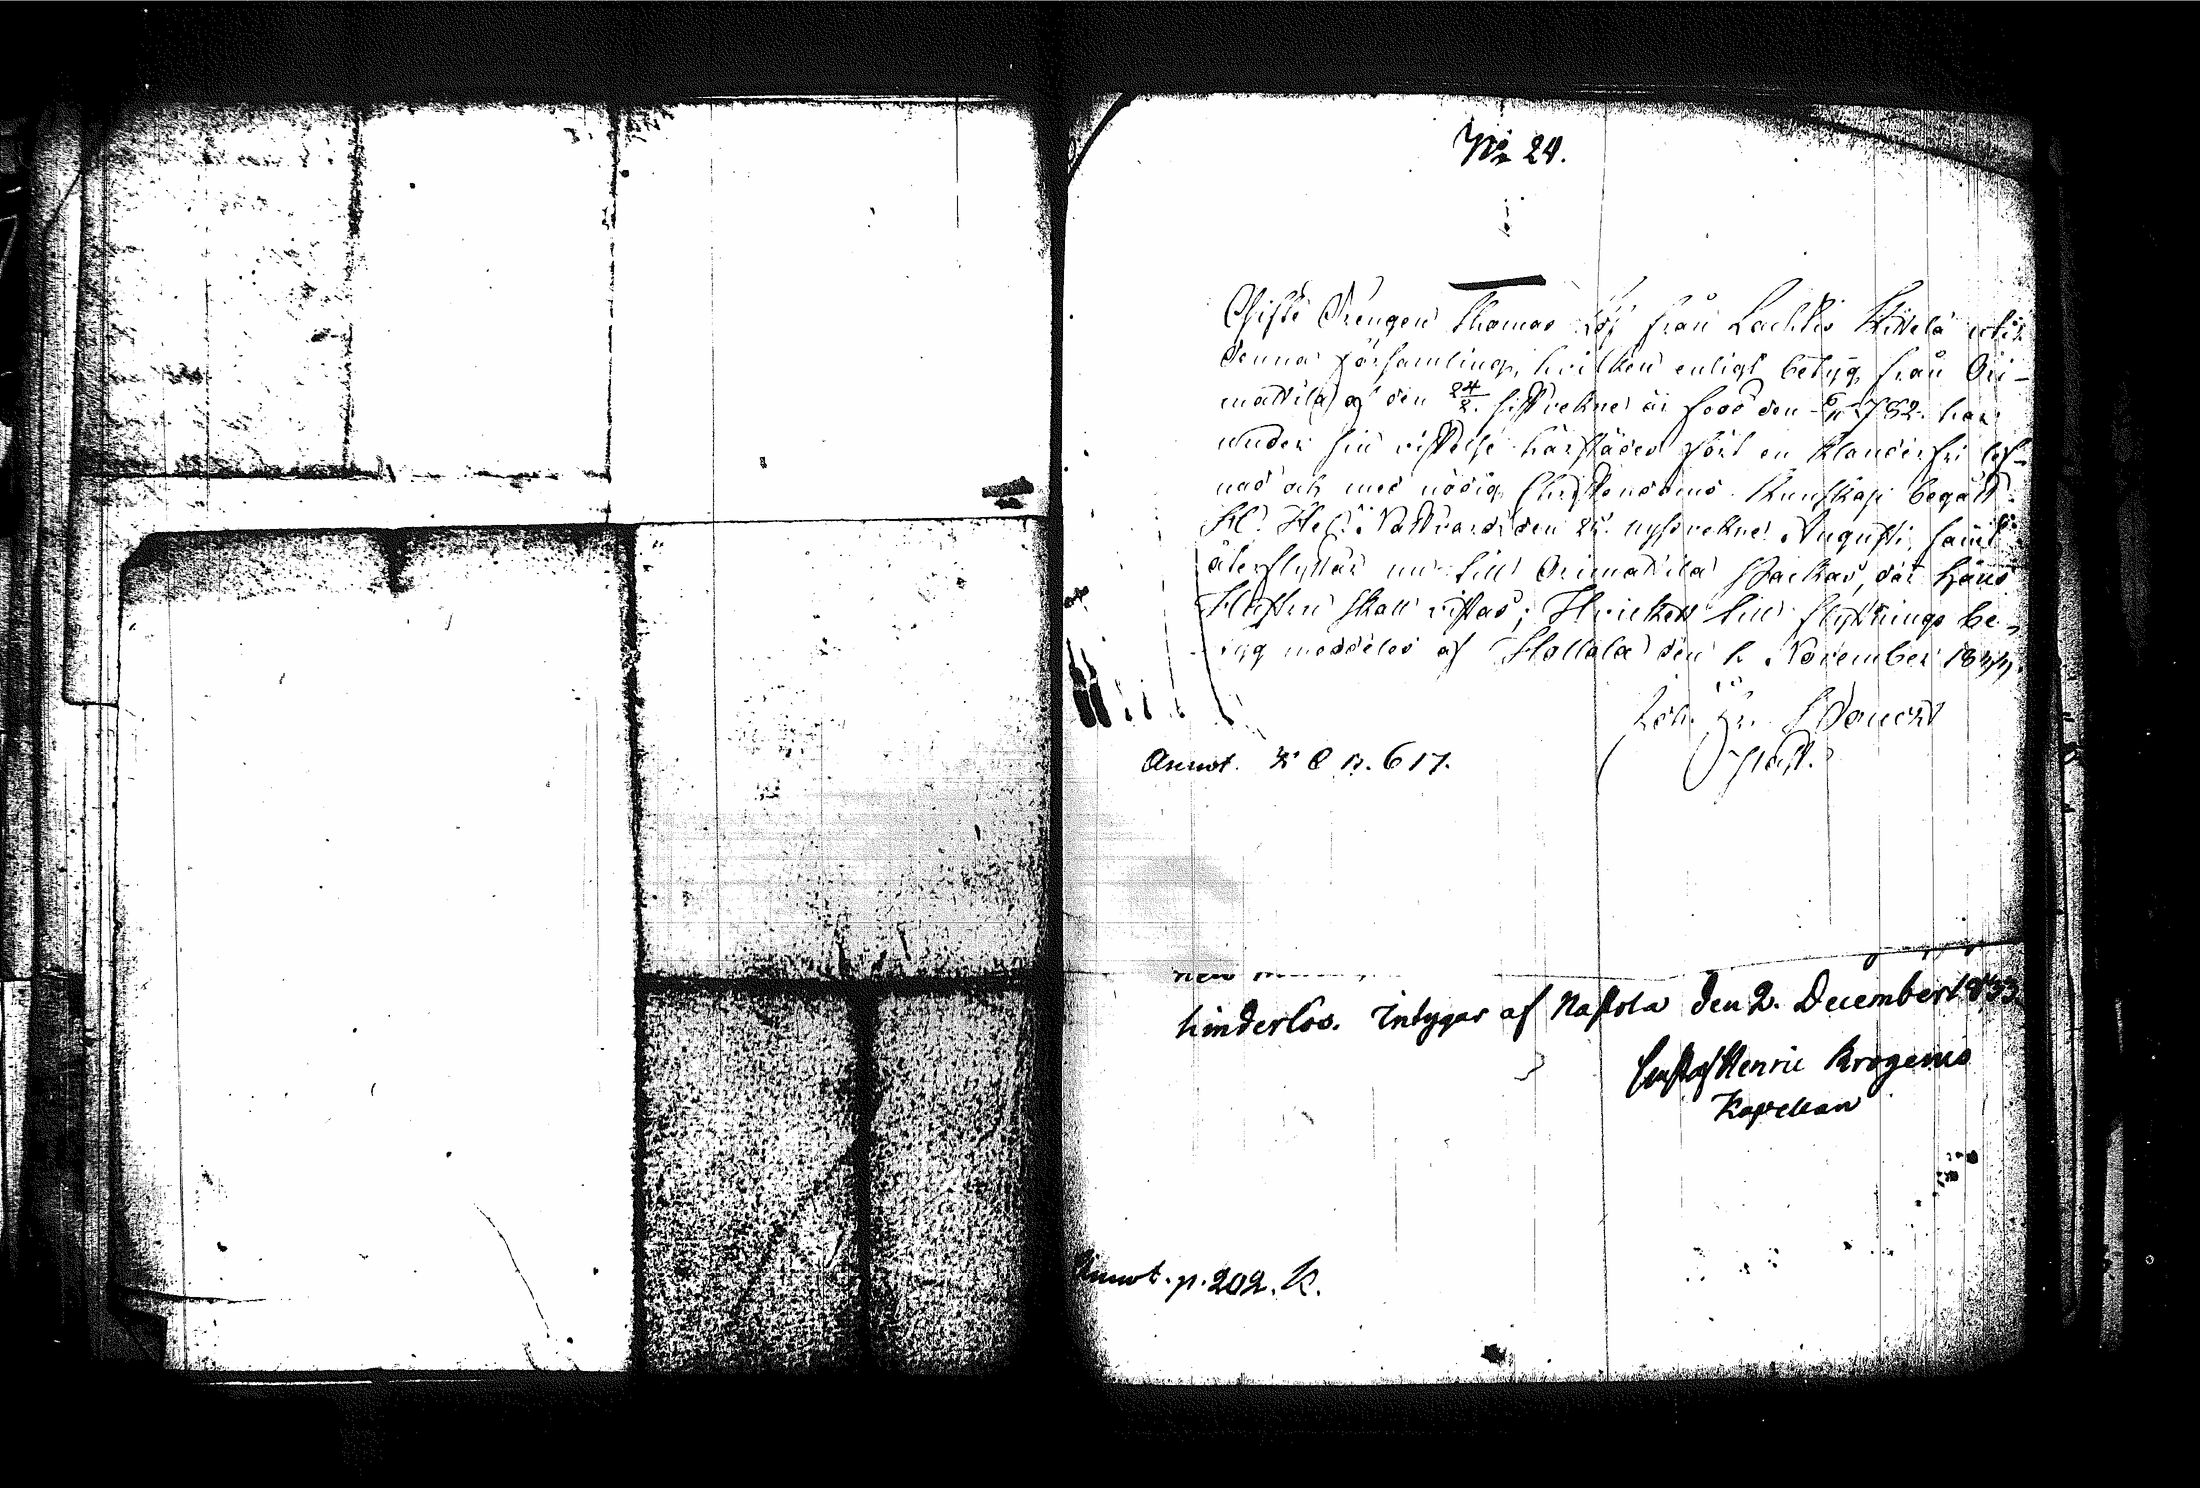 No 24.
Gifte Drengen Thomas från Lachtis Kivelä uti
denna församling, hvilken enligt betyg från Ori-
mattila af den 24/2. sistvekne är född den 782. har
under sin vistelse härstädes fört en klanderfri lef-
nad och med nödig Christendoms Kunskap begått
H. Hel. Nattvard den 25. nyssvekne Augusti, samt
återflyttar nu till Orimattila Sockn, där hans
Hustru skall vistas; Hvilket till flyttnings be-
tyg meddeles af Hollola den November 1833.
Joh.
Past.
Annot. K B p. 617.
hinderlös. Intygar af Nastola den 2. December 1833.
Gustaf Henric Krogerus
Kapellan
Annot. p. 202. K.